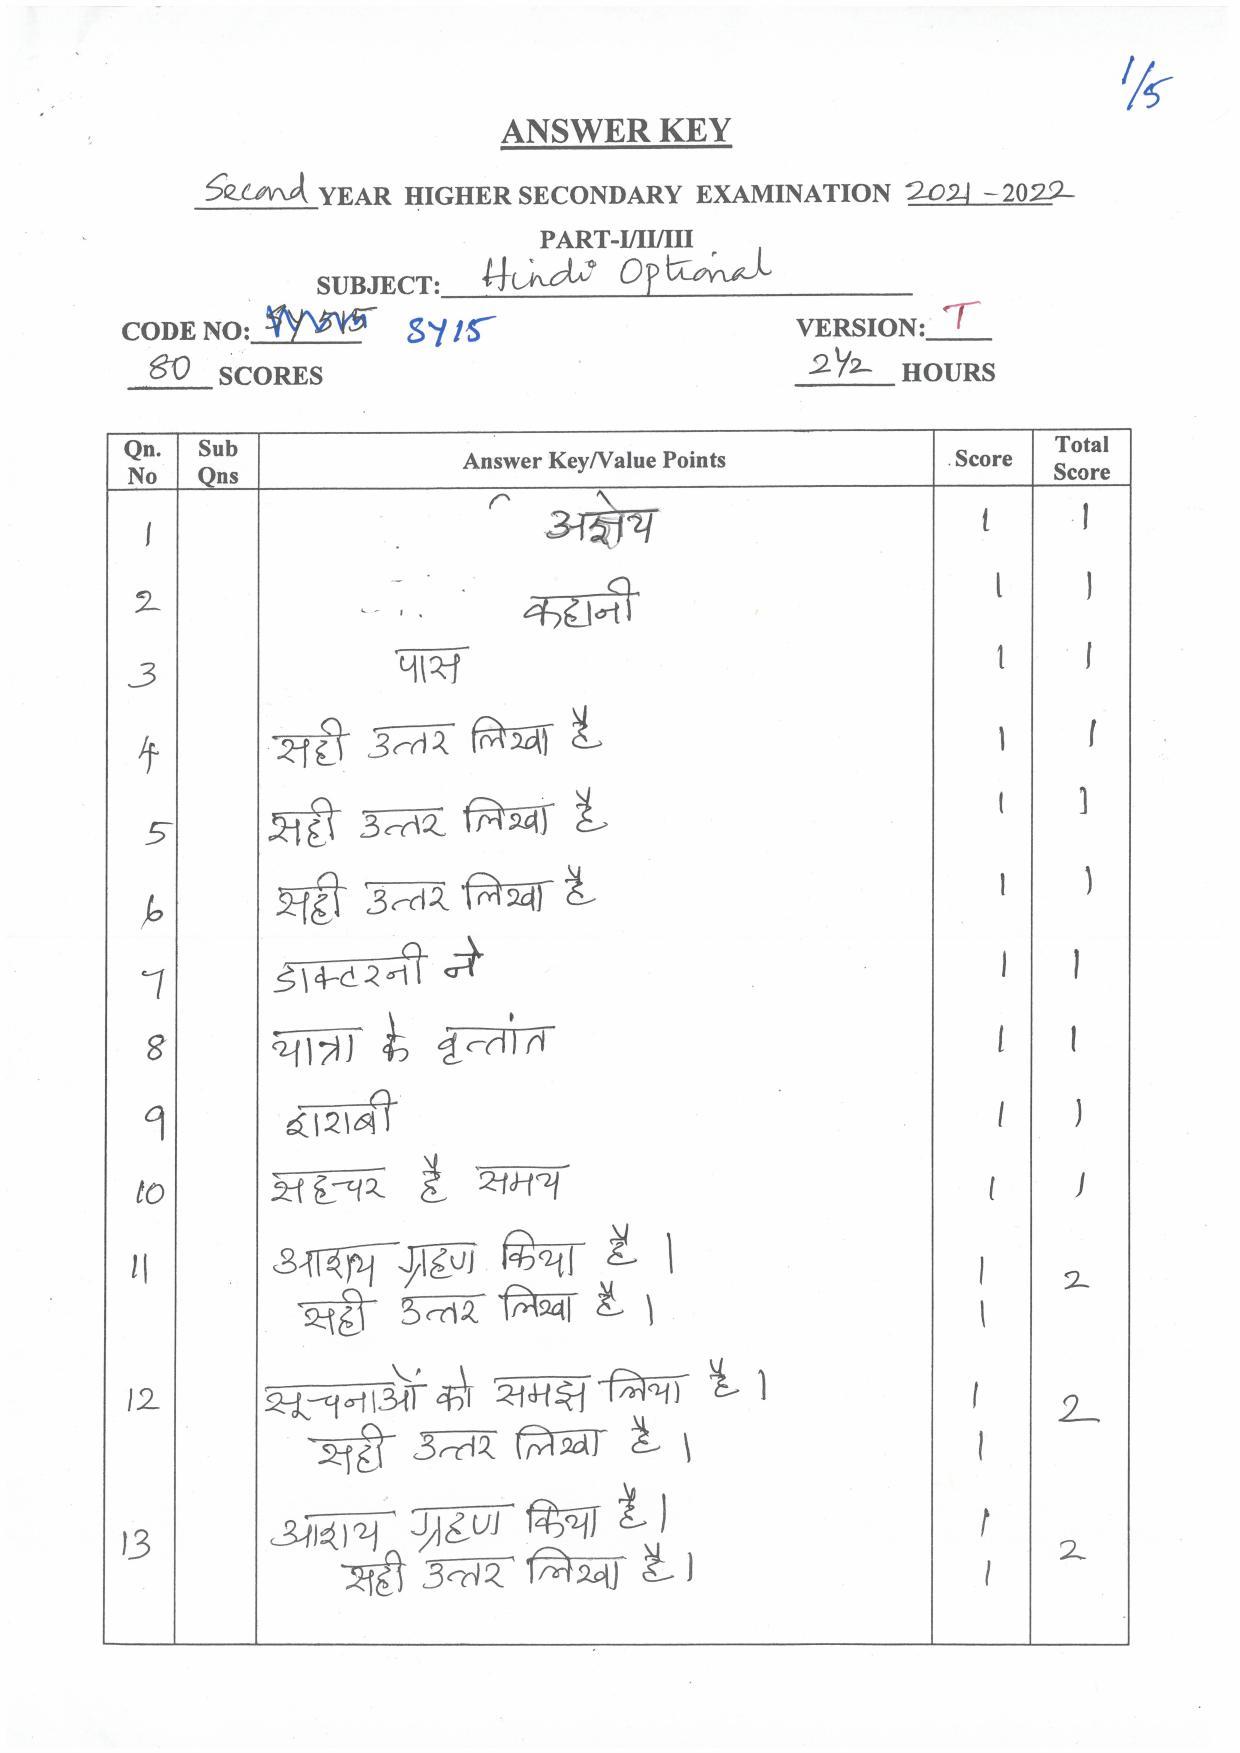 1/5
ANSWER KEY
Second YEAR HIGHER SECONDARY EXAMINATION 2021-2022
PART-I/II/III
SUBJECT: Hindi Optional
CODE NO: SY15 VERSION: T
80 SCORES 2½ HOURS
Qn. No Sub Qns Answer Key/Value Points Score Total Score
1 अज्ञेय 1 1
2 कहानी 1 1
3 पास 1 1
4 सही उत्तर लिखा है 1 1
5 सही उत्तर लिखा है 1 1
6 सही उत्तर लिखा है 1 1
7 डाक्टरनी ने 1 1
8 यात्रा के वृत्तांत 1 1
9 शराबी 1 1
10 सहचर है समय 1 1
11 आशय ग्रहण किया है । 1 2
सही उत्तर लिखा है । 1
12 सूचनाओं को समझ लिया है । 1 2
सही उत्तर लिखा है । 1
13 आशय ग्रहण किया है । 1 2
सही उत्तर लिखा है । 1